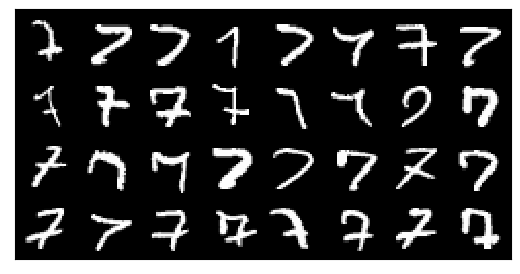 7 7 7 7 7 7 7 7
7 7 7 7 7 7 7
7 7 7 7 7 7 7 7
7 7 7 7 7 7 7 7